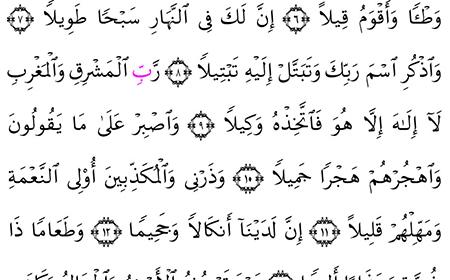 وَطْـًٔا وَأَقْوَمُ قِيلاً ﴿٦﴾ إِنَّ لَكَ فِى ٱلنَّهَارِ سَبْحًا طَوِيلاً ﴿٧﴾
وَٱذْكُرِ ٱسْمَ رَبِّكَ وَتَبَتَّلْ إِلَيْهِ تَبْتِيلاً ﴿٨﴾ رَّبِّ ٱلْمَشْرِقِ وَٱلْمَغْرِبِ
لَآ إِلَـٰهَ إِلَّا هُوَ فَٱتَّخِذْهُ وَكِيلاً ﴿٩﴾ وَٱصْبِرْ عَلَىٰ مَا يَقُولُونَ
وَٱهْجُرْهُمْ هَجْرًا جَمِيلاً ﴿١٠﴾ وَذَرْنِى وَٱلْمُكَذِّبِينَ أُو۟لِى ٱلنَّعْمَةِ
وَمَهِّلْهُمْ قَلِيلاً ﴿١١﴾ إِنَّ لَدَيْنَآ أَنكَالاً وَجَحِيمًا ﴿١٢﴾ وَطَعَامًا ذَا